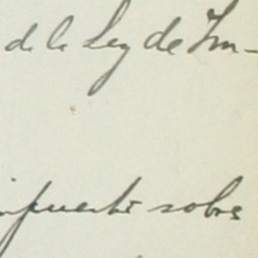 de la Ley de Im-
impuesto sobre